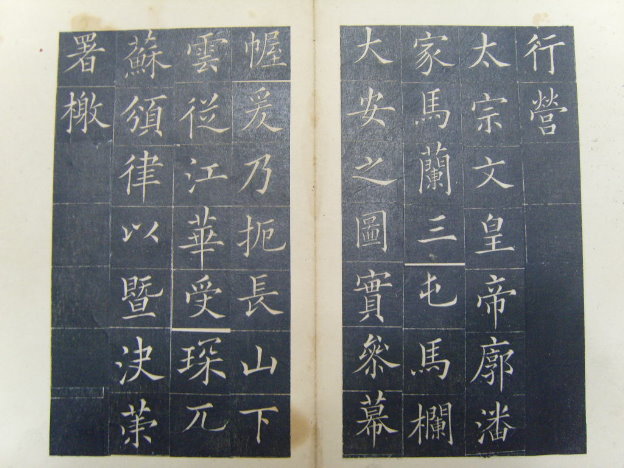 行營
太宗文皇帝廓潘
家馬蘭三屯馬欄
大安之圖實參幕
幄爰乃扼長山下
雲從江華受琛兀
蘇頒律以暨決䇿
署檄